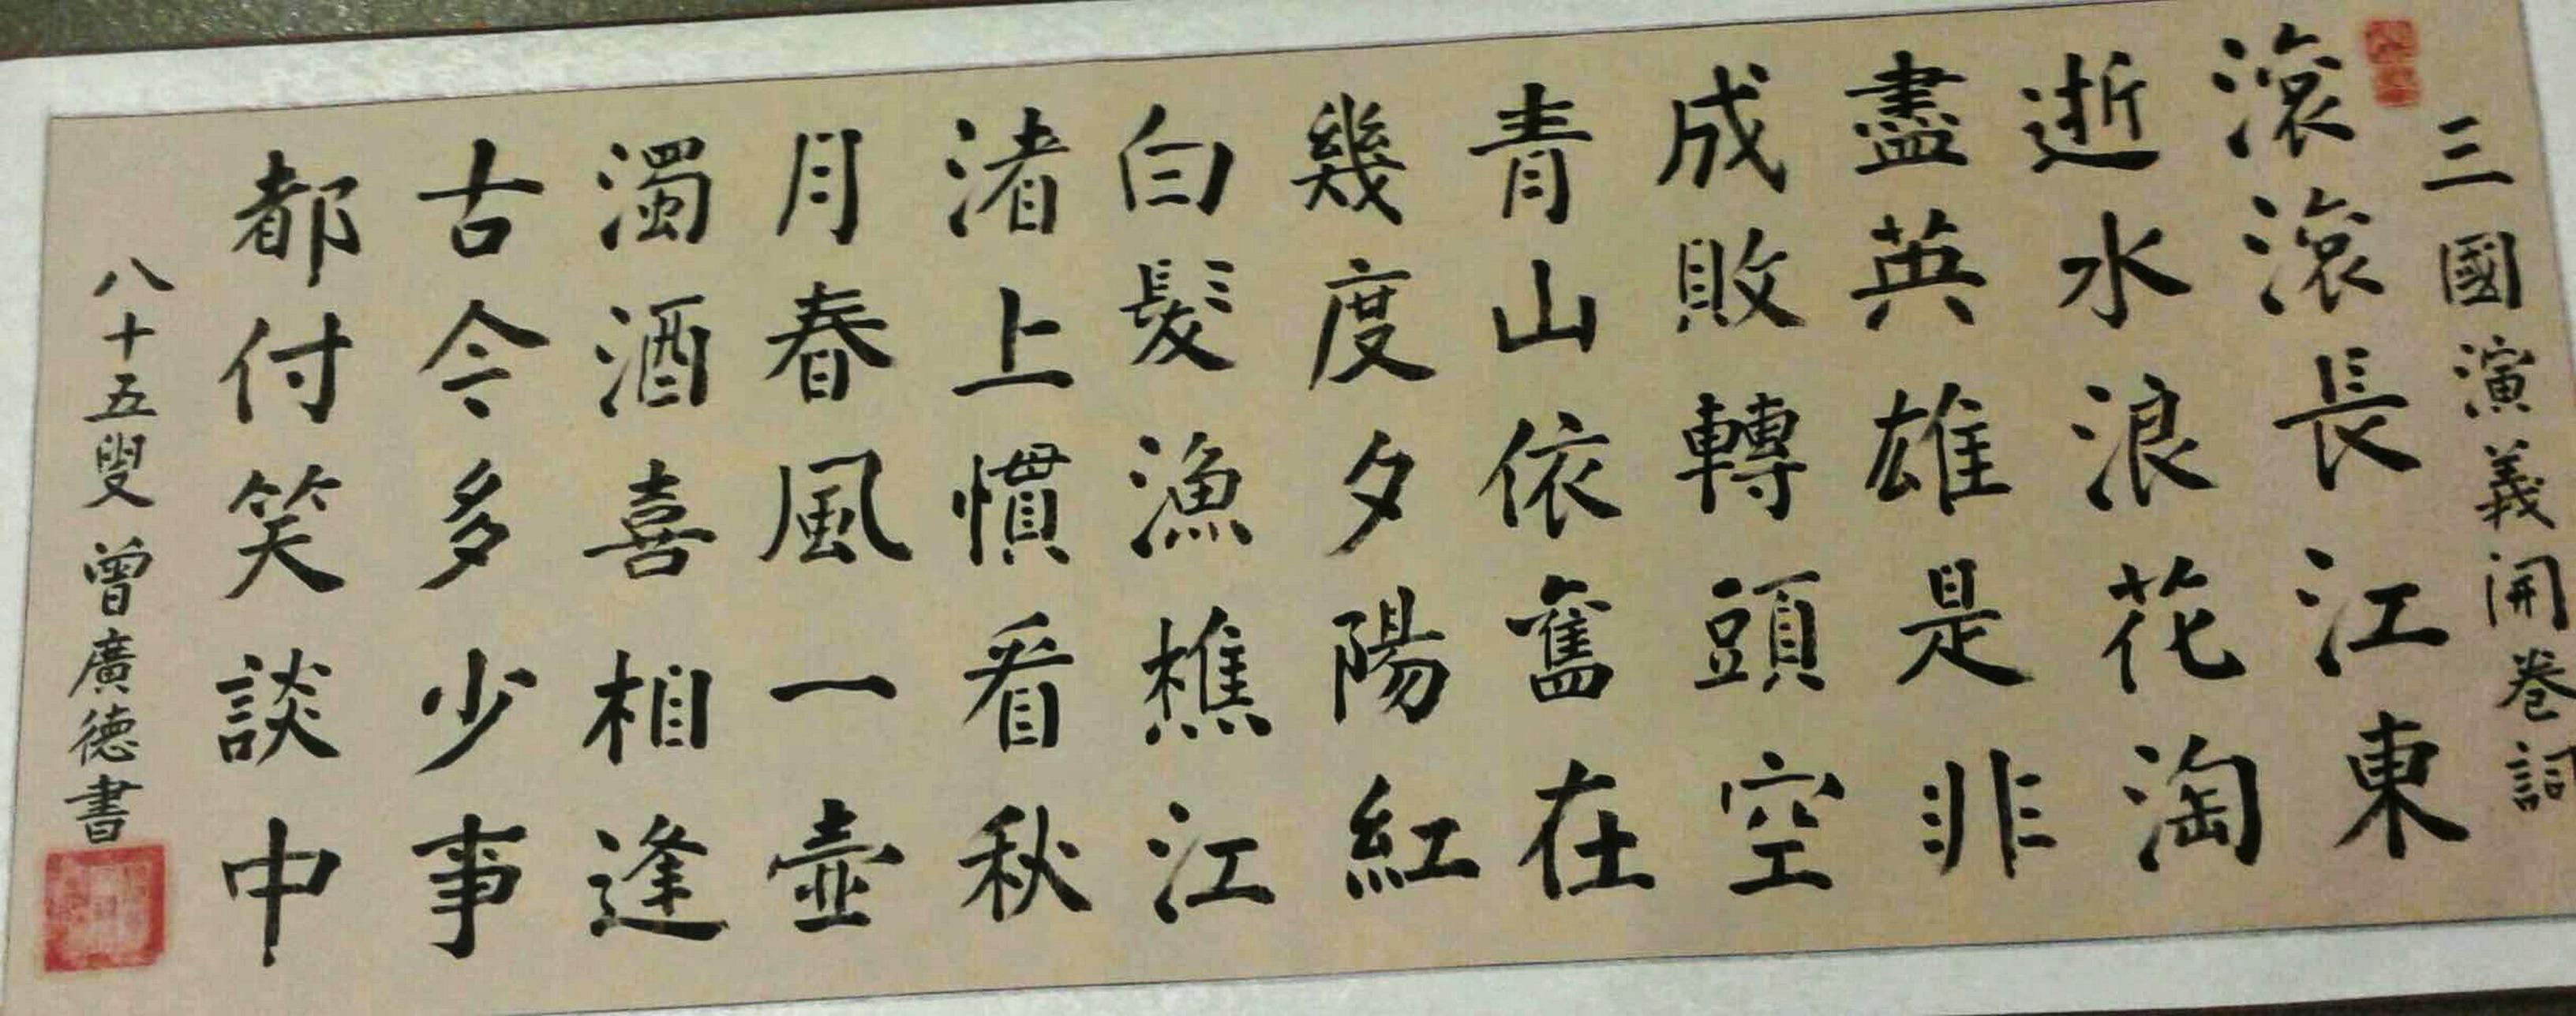 三國演義開卷詞
滾滾長江東
逝水浪花淘
盡英雄是非
成敗轉頭空
青山依奮在
幾度夕陽紅
白髮漁樵江
渚上慣看秋
月春風一壺
濁酒喜相逢
古今多少事
都付笑談中
八十五叟曾廣德書